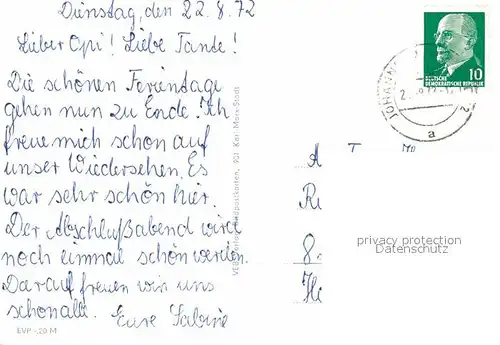 Dienstag, den 22.8.72
Lieber Opi! Liebe Tante!
Die schönen Ferientage
gehen nun zu Ende. Ich
freue mich schon auf
unser Wiedersehen. Es
war sehr schön hier.
Der Abschlußabend wird
noch einmal schön werden.
Darauf freuen wir uns
schon alle. Eure Sabine
EVP -,20 M
901 Karl-Marx-Stadt
10
DEUTSCHE
DEMOKRATISCHE REPUBLIK
a
privacy protection
Datenschutz